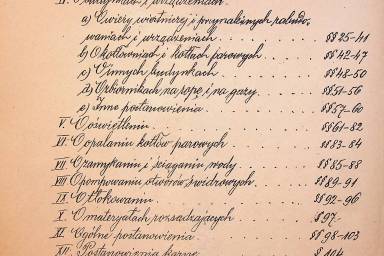 a) O wieży wiertniczej i przynależnych zabudo-
waniach i urządzeniach . . . . . §§ 25-41
b) O kotłowniach i kotłach parowych . . . . §§ 42-47
c) O innych budynkach . . . . . §§ 48-50
d) O zbiornikach na ropę i na gazy . . . . §§ 51-56
e) Inne postanowienia . . . . . §§ 57-60
V. O oświetleniu . . . . . §§ 61-82
VI. O opalaniu kotłów parowych . . . . . §§ 83-84
VII. O zamykaniu i ściąganiu wody . . . . . §§ 85-88
VIII O pompowaniu otworów świdrowych . . . . §§ 89-91
IX. O tłokowaniu . . . . . §§ 92-96
X. O materyałach rozsadzających . . . . § 97-
XI. Ogólne postanowienia . . . . . §§ 98-103
XII. Postanowienia karne . . . . . § 104